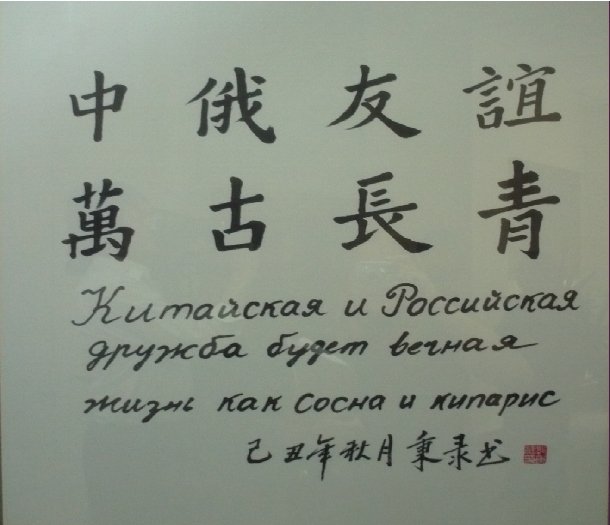 中俄友誼
萬古長青
Китайская и Российская
дружба будет вечная
жизнь как сосна и кипарис
己丑年秋月秉录书